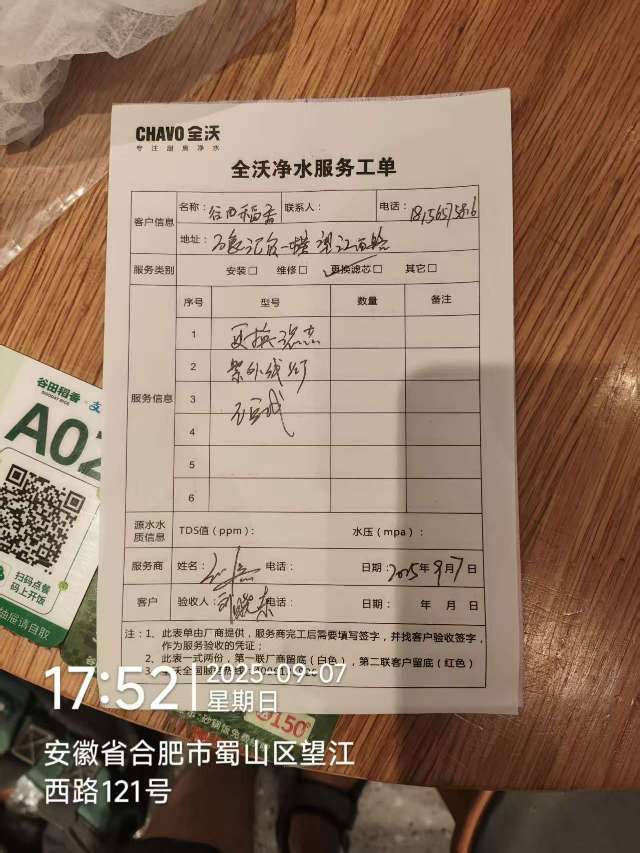 CHAVO 全沃
专注厨房净水
全沃净水服务工单
客户信息
名称：谷田稻香 联系人： 电话：
地址： 望江西路
服务类别 安装□ 维修□ 更换滤芯□ 其它□
服务信息
序号 型号 数量 备注
1 更换滤芯
2 紫外线灯
3
4
5
6
源水水质信息 TDS值（ppm）： 水压（mpa）：
服务商 姓名： 电话： 日期：2025年9月7日
客户 验收人： 电话： 日期： 年 月 日
注：1、此表单由厂商提供，服务商完工后需要填写签字，并找客户验收签字，
作为服务验收的凭证；
2、此表一式两份，第一联厂商留底（白色），第二联客户留底（红色）
谷田稻香
A02
扫码点餐
码上开饭
150
17:52
2025-09-07
星期日
安徽省合肥市蜀山区望江
西路121号